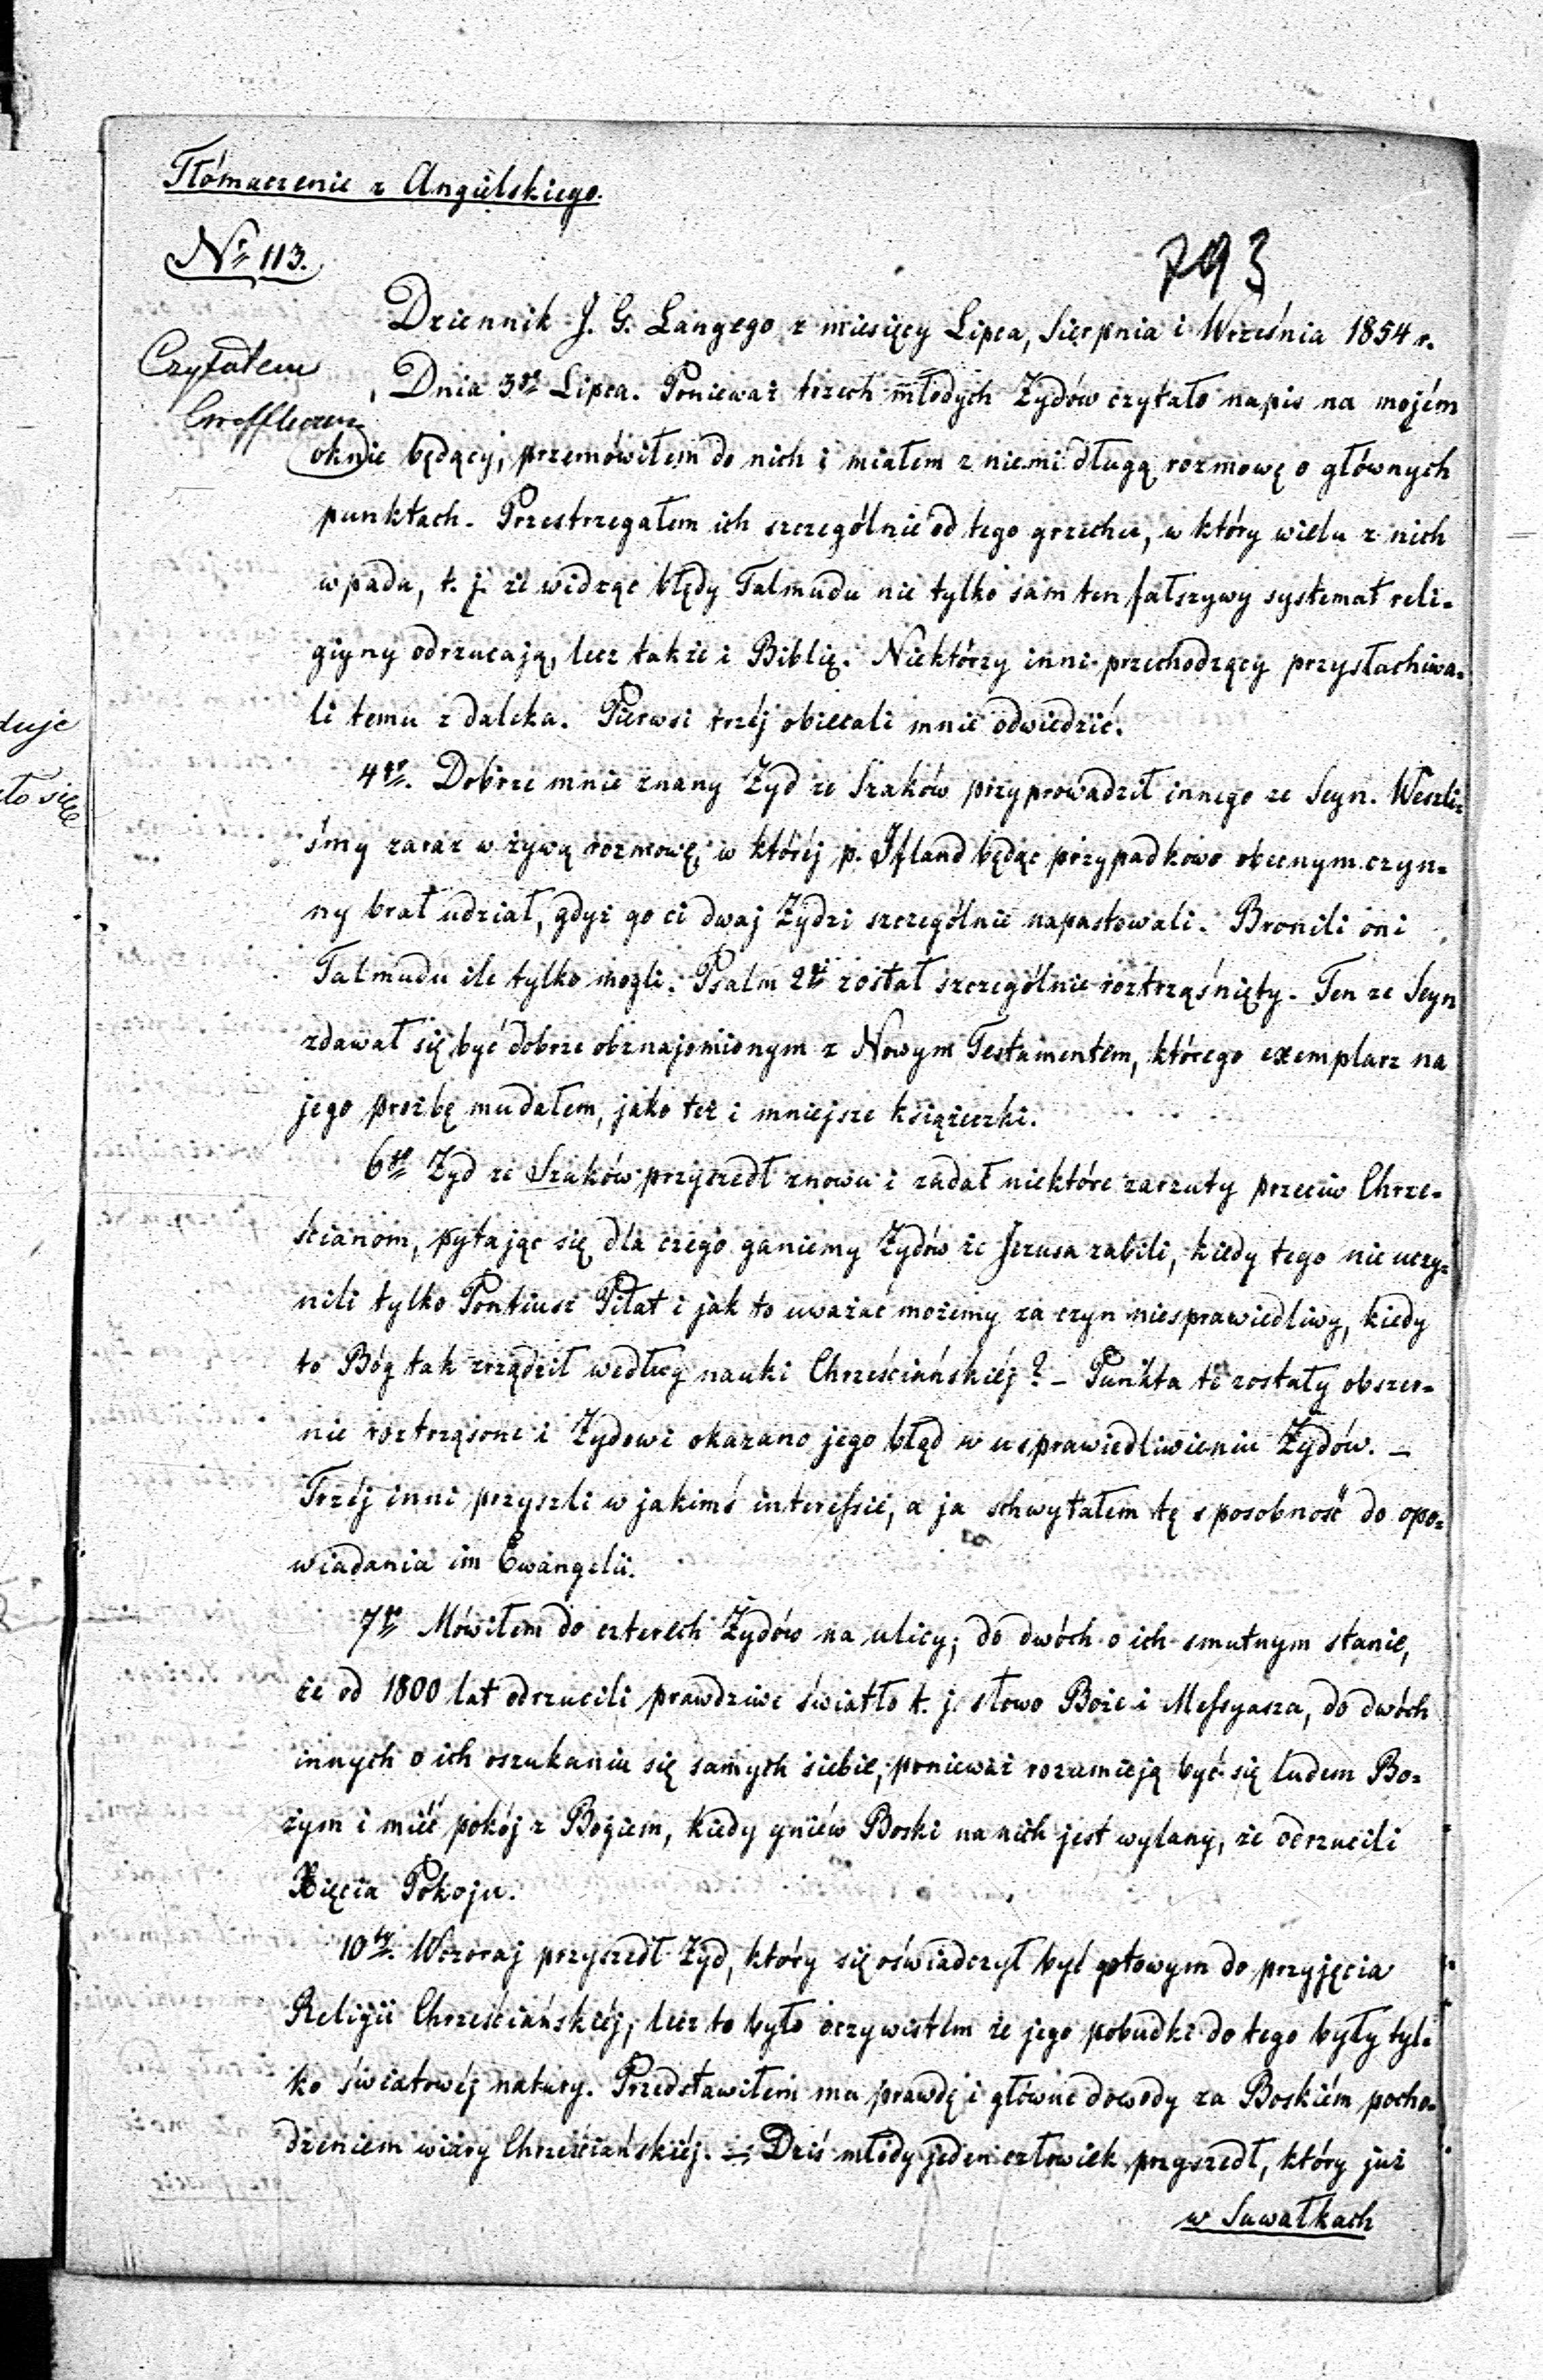 Tłómaczenie z Angielskiego.
Nr 113.
793
Dziennik J. G. Langego z miesięcy Lipca, Sierpnia i Września 1854 r.
Czytałem
Dnia 3go Lipca. Ponieważ trzech młodych Żydów czytało napis na mojém
oknie będący, przemówiłem do nich i miałem z niemi długą rozmowę o głównych
punktach. Przestrzegałem ich szczególnie od tego grzechu, w który wielu z nich
wpada, t. j. że widząc błędy Talmudu nie tylko sam ten fałszywy systemat reli-
giyny odrzucają, lecz także i Biblię. Niektórzy inni przechodzący przysłachiwa-
li temu z daleka. Pierwsi trzéj obiecali mnie odwiedzić.
4go. Dobrze mnie znany Żyd ze Szaków przyprowadził innego ze Seyn. Weszli-
śmy zaraz w żywą rozmowę, w któréj p. Ifland będąc przypadkowo obecnym czyn-
ny brał udział, gdyż go ci dwaj Żydzi szczególnie napastowali. Bronili oni
Talmudu ile tylko mogli. Psalm 2gi został szczególnie roztrząśnięty. Ten ze Seyn
zdawał się być dobrze obznajomionym z Nowym Testamentem, którego exemplarz na
jego prożbę mu dałem, jako też i mniejsze książeczki.
6go Żyd ze Szaków przyszedł znowu i zadał niektóre zarzuty przeciw Chrze-
ścianom, pytając się dla czego ganiemy Żydów że Jezusa zabili, kiedy tego nie uczy-
nili tylko Pontiusz Piłat i jak to uważać możemy za czyn niesprawiedliwy, kiedy
to Bóg tak zrządził według nauki Chrześciańskiéj? – Punkta te zostały obszer-
nie roztrząsone i Żydowi okazano jego błąd w usprawiedliwieniu Żydów. –
Trzéj inni przyszli w jakimś interessie, a ja schwytałem tę sposobność do opo-
wiadania im Ewangelii.
7go Mówiłem do czterech Żydów na ulicy; do dwóch o ich smutnym stanie,
że od 1800 lat odrzucili prawdziwe światło t. j. słowo Boże i Messyasza, do dwóch
innych o ich oszukaniu się samych siebie, ponieważ rozumieją być się ludem Bo-
żym i mieć pokój z Bogiem, kiedy gniéw Boski na nich jest wylany, że odrzucili
Xięcia Pokoju.
10ty. Wczoraj przyszedł Żyd, który się oświadczył być gotowym do przyjęcia
Religii Chrześciańskiéj, lecz to było oczywistém że jego pobudki do tego były tyl-
ko światowéj natury. Przedstawiłem mu prawdę i główne dowody za Boskiém pocho-
dzeniem wiary Chrześciańskiéj. – Dziś młody jeden człowiek przyszedł, który już
w Suwałkach
duje
ło się